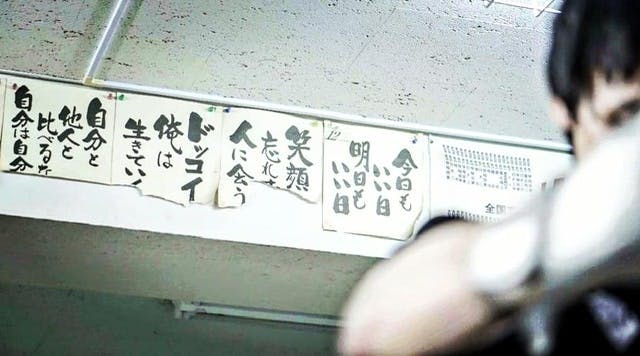 全国
今日も
いい日
明日も
いい日
12
笑顔
忘れ
人に会う
ドッコイ
俺は
生きてい
自分と
他人と
比べるな
自分は自分